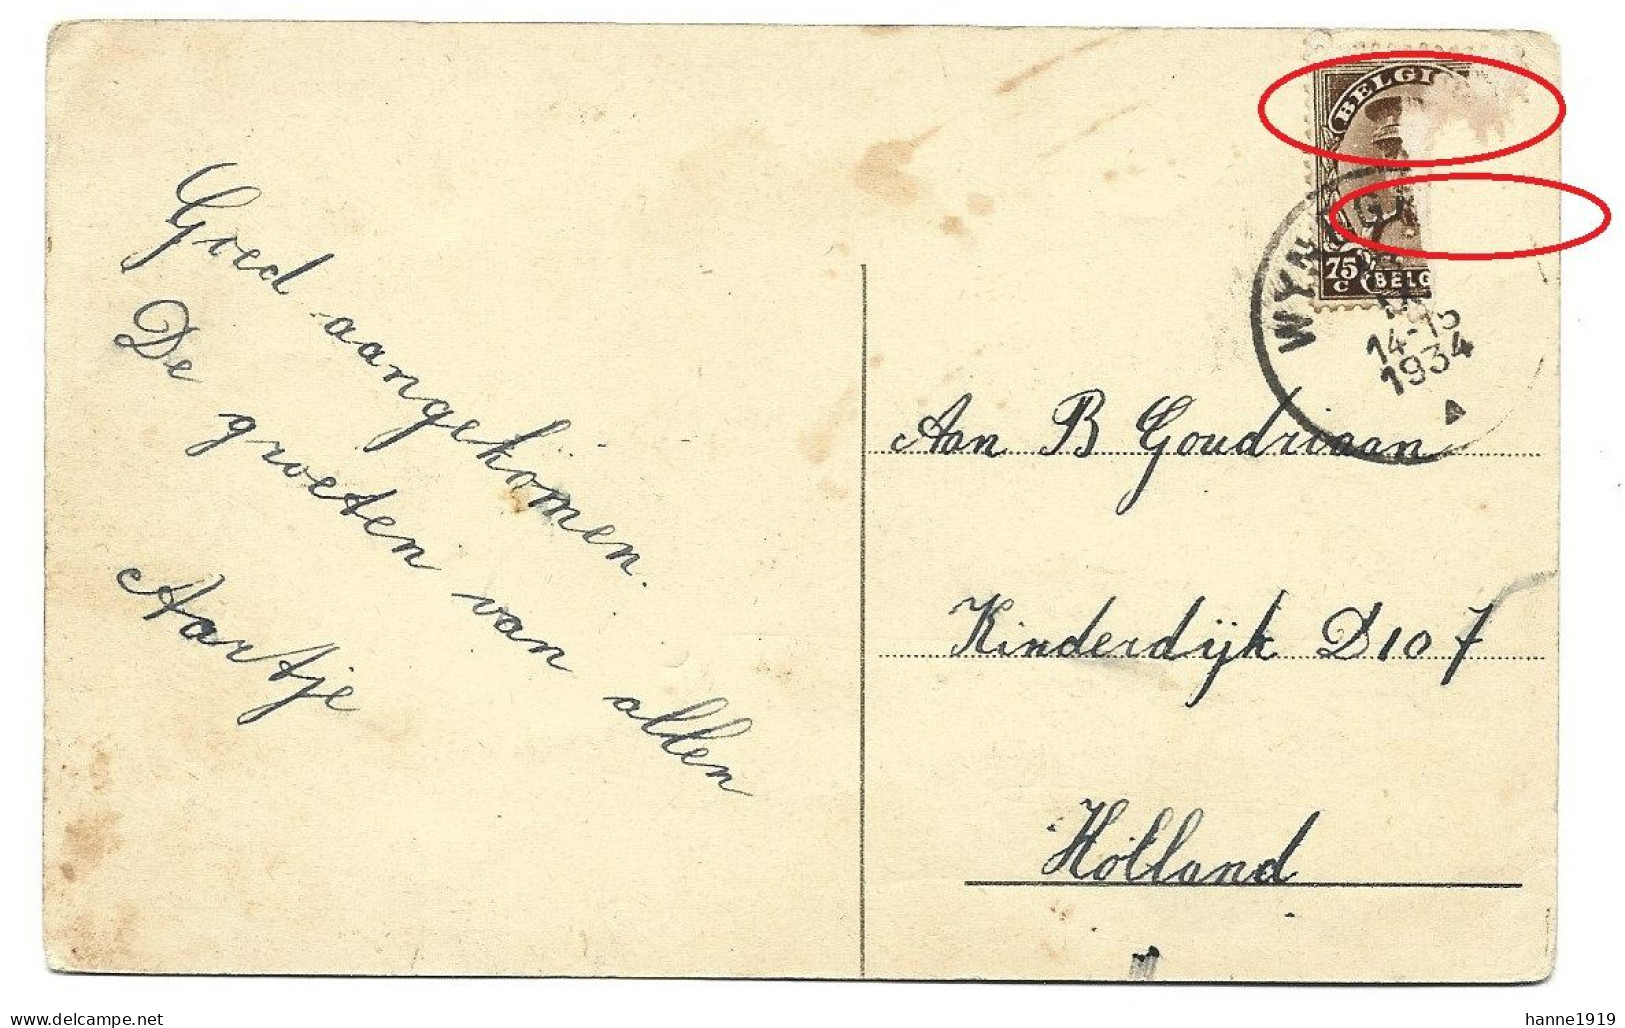 Goed aangekomen.
De groeten van allen
Aartje
BELGI
75
C
BELG
WYN
14-15
1934
Aan B Goudriaan
Kinderdijk D107
Holland
delcampe.net
hanne1919